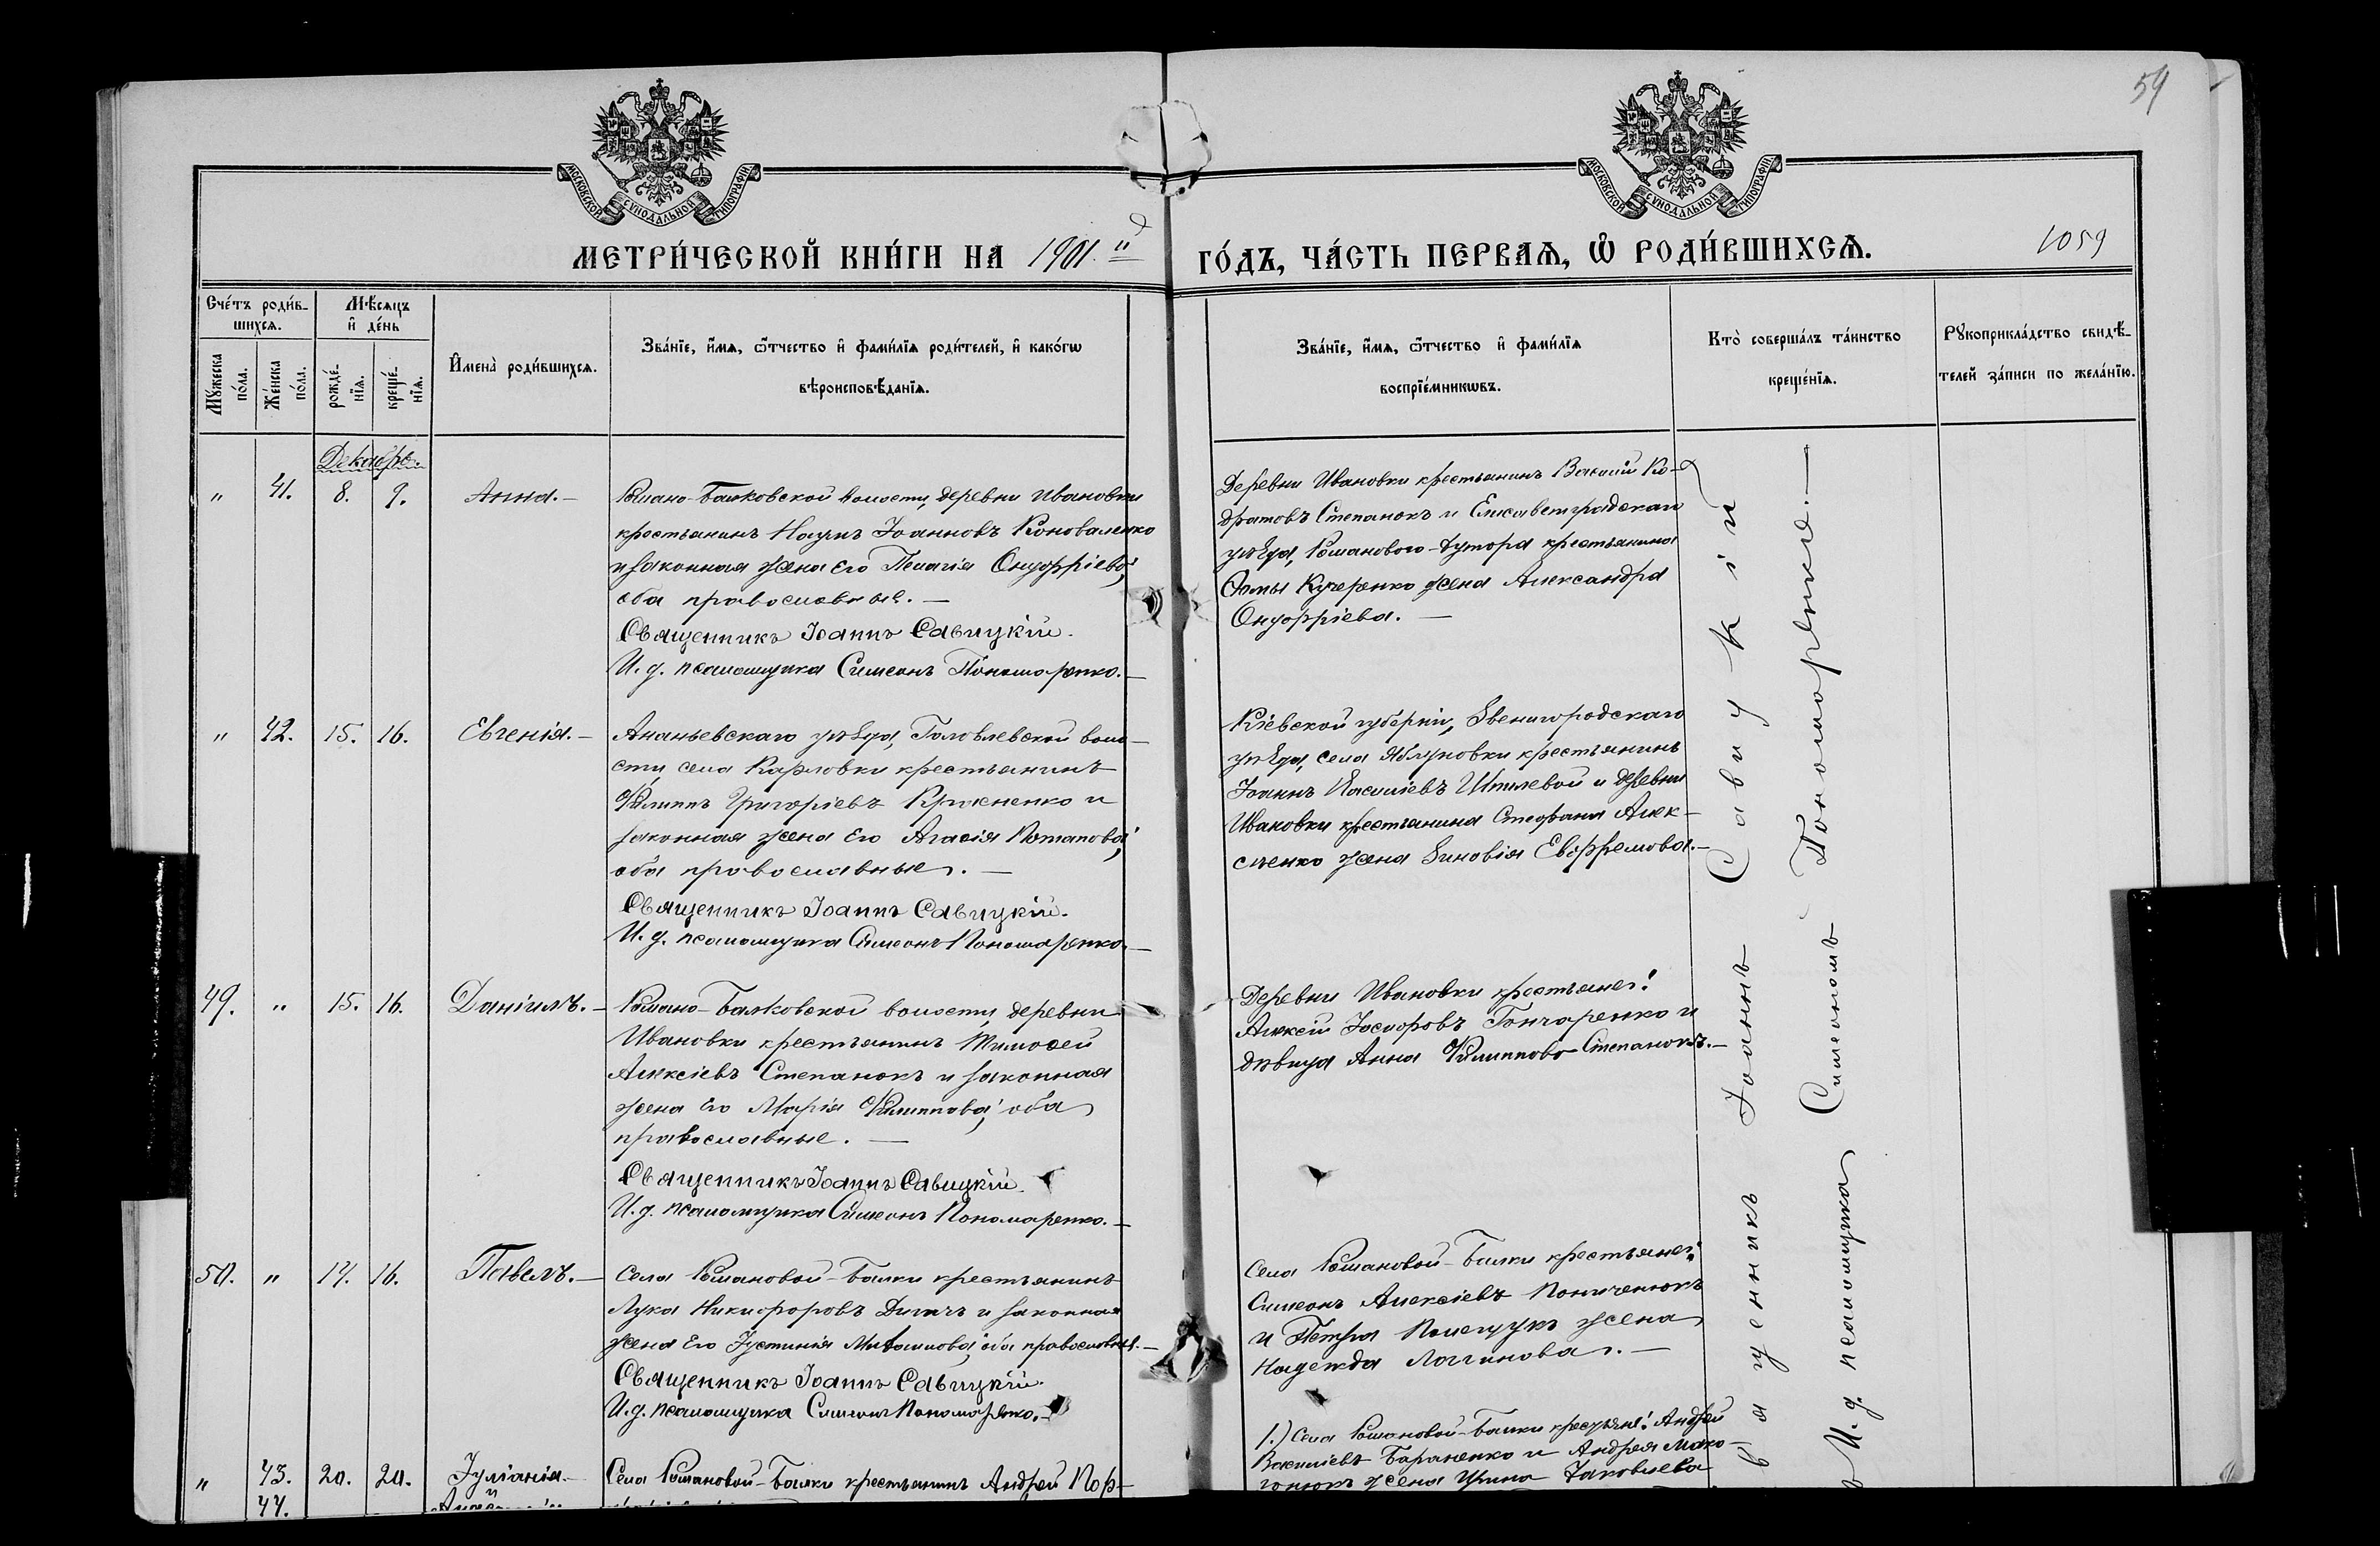 59
МОСКОВСКОЙ СУНОДАЛЬНОЙ ТИПОГРАФІИ
МОСКОВСКОЙ СУНОДАЛЬНОЙ ТИПОГРАФІИ
МЕТРИ́ЧЕСКОЙ КНИ́ГИ НА 1901 й
ГО́ДЪ, ЧА́СТЬ ПЕРВАѦ, Ѽ РОДИ́ВШИХСѦ.
1059
Сче́тъ роди́в-
шихсѧ.
Мѣ́сѧцъ
и҆ де́нь
Мꙋ́жеска
по́ла.
Же́нска
по́ла.
рожде́-
нїѧ.
креще́-
нїѧ.
И҆мена̀ роди́вшихсѧ.
Зва́нїе, и҆́мѧ, ѻ҆́тчество и҆ фами́лїѧ роди́телей, и҆ како́гѡ
вѣроисповѣ́данїѧ.
Зва́нїе, и҆́мѧ, ѻ҆́тчество и҆ фами́лїѧ
воспрїе́мникѡвъ.
Кто̀ соверша́лъ та́инство
креще́нїѧ.
Рꙋкоприкла́дство свидѣ́-
телей за́писи по жела́нїю.
Декабрь.
" 41. 8. 9. Анна.—
Романо-Балковской волости, деревни Ивановки
крестьянинъ Наумъ Іоанновъ Коноваленко
и законная жена его Пелагія Онуфріева,
оба православные.—
Священникъ Іоаннъ Савицкій.
И. д. псаломщика Симеонъ Пономаренко.—
Деревни Ивановки крестьянинъ Василій Ко-
дратовъ Степанокъ и Елисаветградскаго
уѣзда, Романового-Хутора крестьянина
Ѳомы Кучеренко жена Александра
Онуфріева.—
" 42. 15. 16. Евгенія.—
Ананьевскаго уѣзда, Головлевской воло-
сти, села Карловки крестьянинъ
Филиппъ Григоріевъ и
законная жена его Агафія Потапова,
оба православные.—
Священникъ Іоаннъ Савицкій.
И. д. псаломщика Симеонъ Пономаренко.—
Кіевской губерніи, Звенигородскаго
уѣзда, села Яблуновки крестьянинъ
Іоаннъ Василіевъ Штилевой и деревни
Ивановки крестьянина Стефана Алек-
сѣенко жена Зиновія Евфремова.—
49. " 15. 16. Даніилъ.—
Романо-Балковской волости, деревни
Ивановки крестьянинъ Тимоѳей
Алексіевъ Степанокъ и законная
жена его Марія Филиппова, оба
православные.—
Священникъ Іоаннъ Савицкій.
И. д. псаломщика Симеонъ Пономаренко.—
Деревни Ивановки крестьяне:
Алексій Іосифовъ Гончаренко и
дѣвица Анна Филиппова Степанокъ.—
50. " 14. 16. Павелъ.—
Села Романовой-Балки крестьянинъ
Лука Никифоровъ и законная
жена его Іустинія оба православные.—
Священникъ Іоаннъ Савицкій.
И. д. псаломщика Симеонъ Пономаренко.—
Села Романовой-Балки крестьяне:
Симеонъ Алексіевъ
и Петра Полещукъ жена
Надежда Логгинова.—
" 43. 20. 20. Іуліанія
44. и
Села Романовой-Балки крестьянинъ Андрей Пор-
1.) Села Романовой-Балки крестьяне: Андрей
Василіевъ Бараненко и Андрея Мако-
гонюкъ жена Ирина Іаковлева
вященникъ Іоаннъ Савицкій
И. д. псаломщика Симеонъ Пономаренко.—